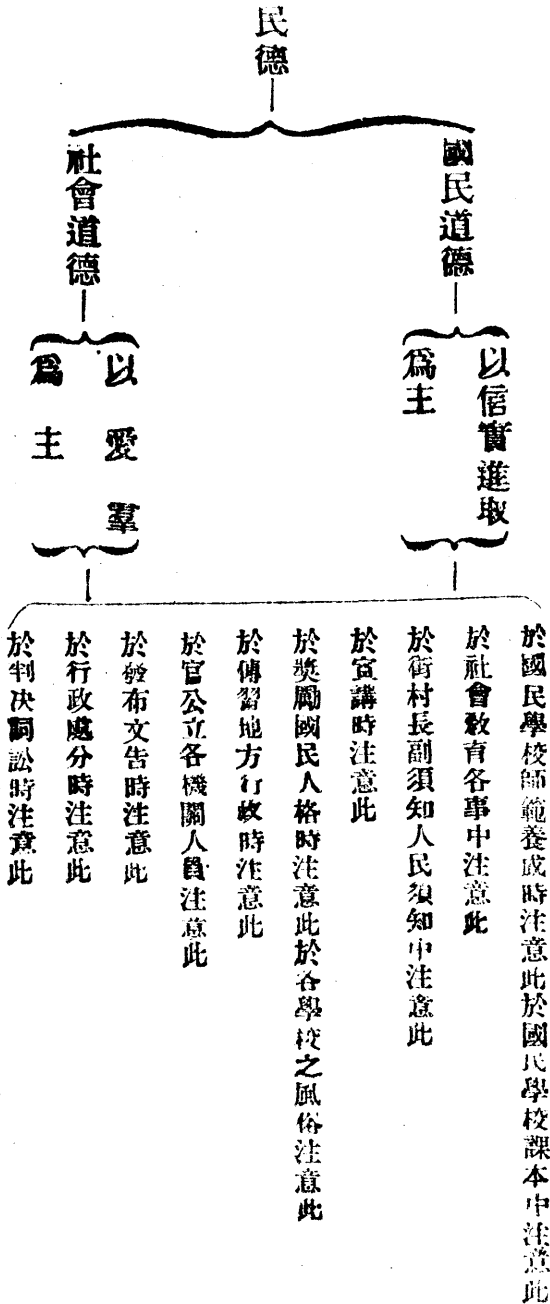 民德
國民道德
以信實進取
爲主
社會道德
以愛羣
爲主
於國民學校師範養成時注意此於國民學校課本中注意此
於社會敎育各事中注意此
於街村長副須知人民須知中注意此
於宣講時注意此
於奬勵國民人格時注意此於各學校之風俗注意此
於傳習地方行政時注意此
於官公立各機關人員注意此
於發布文告時注意此
於行政處分時注意此
於判决詞訟時注意此